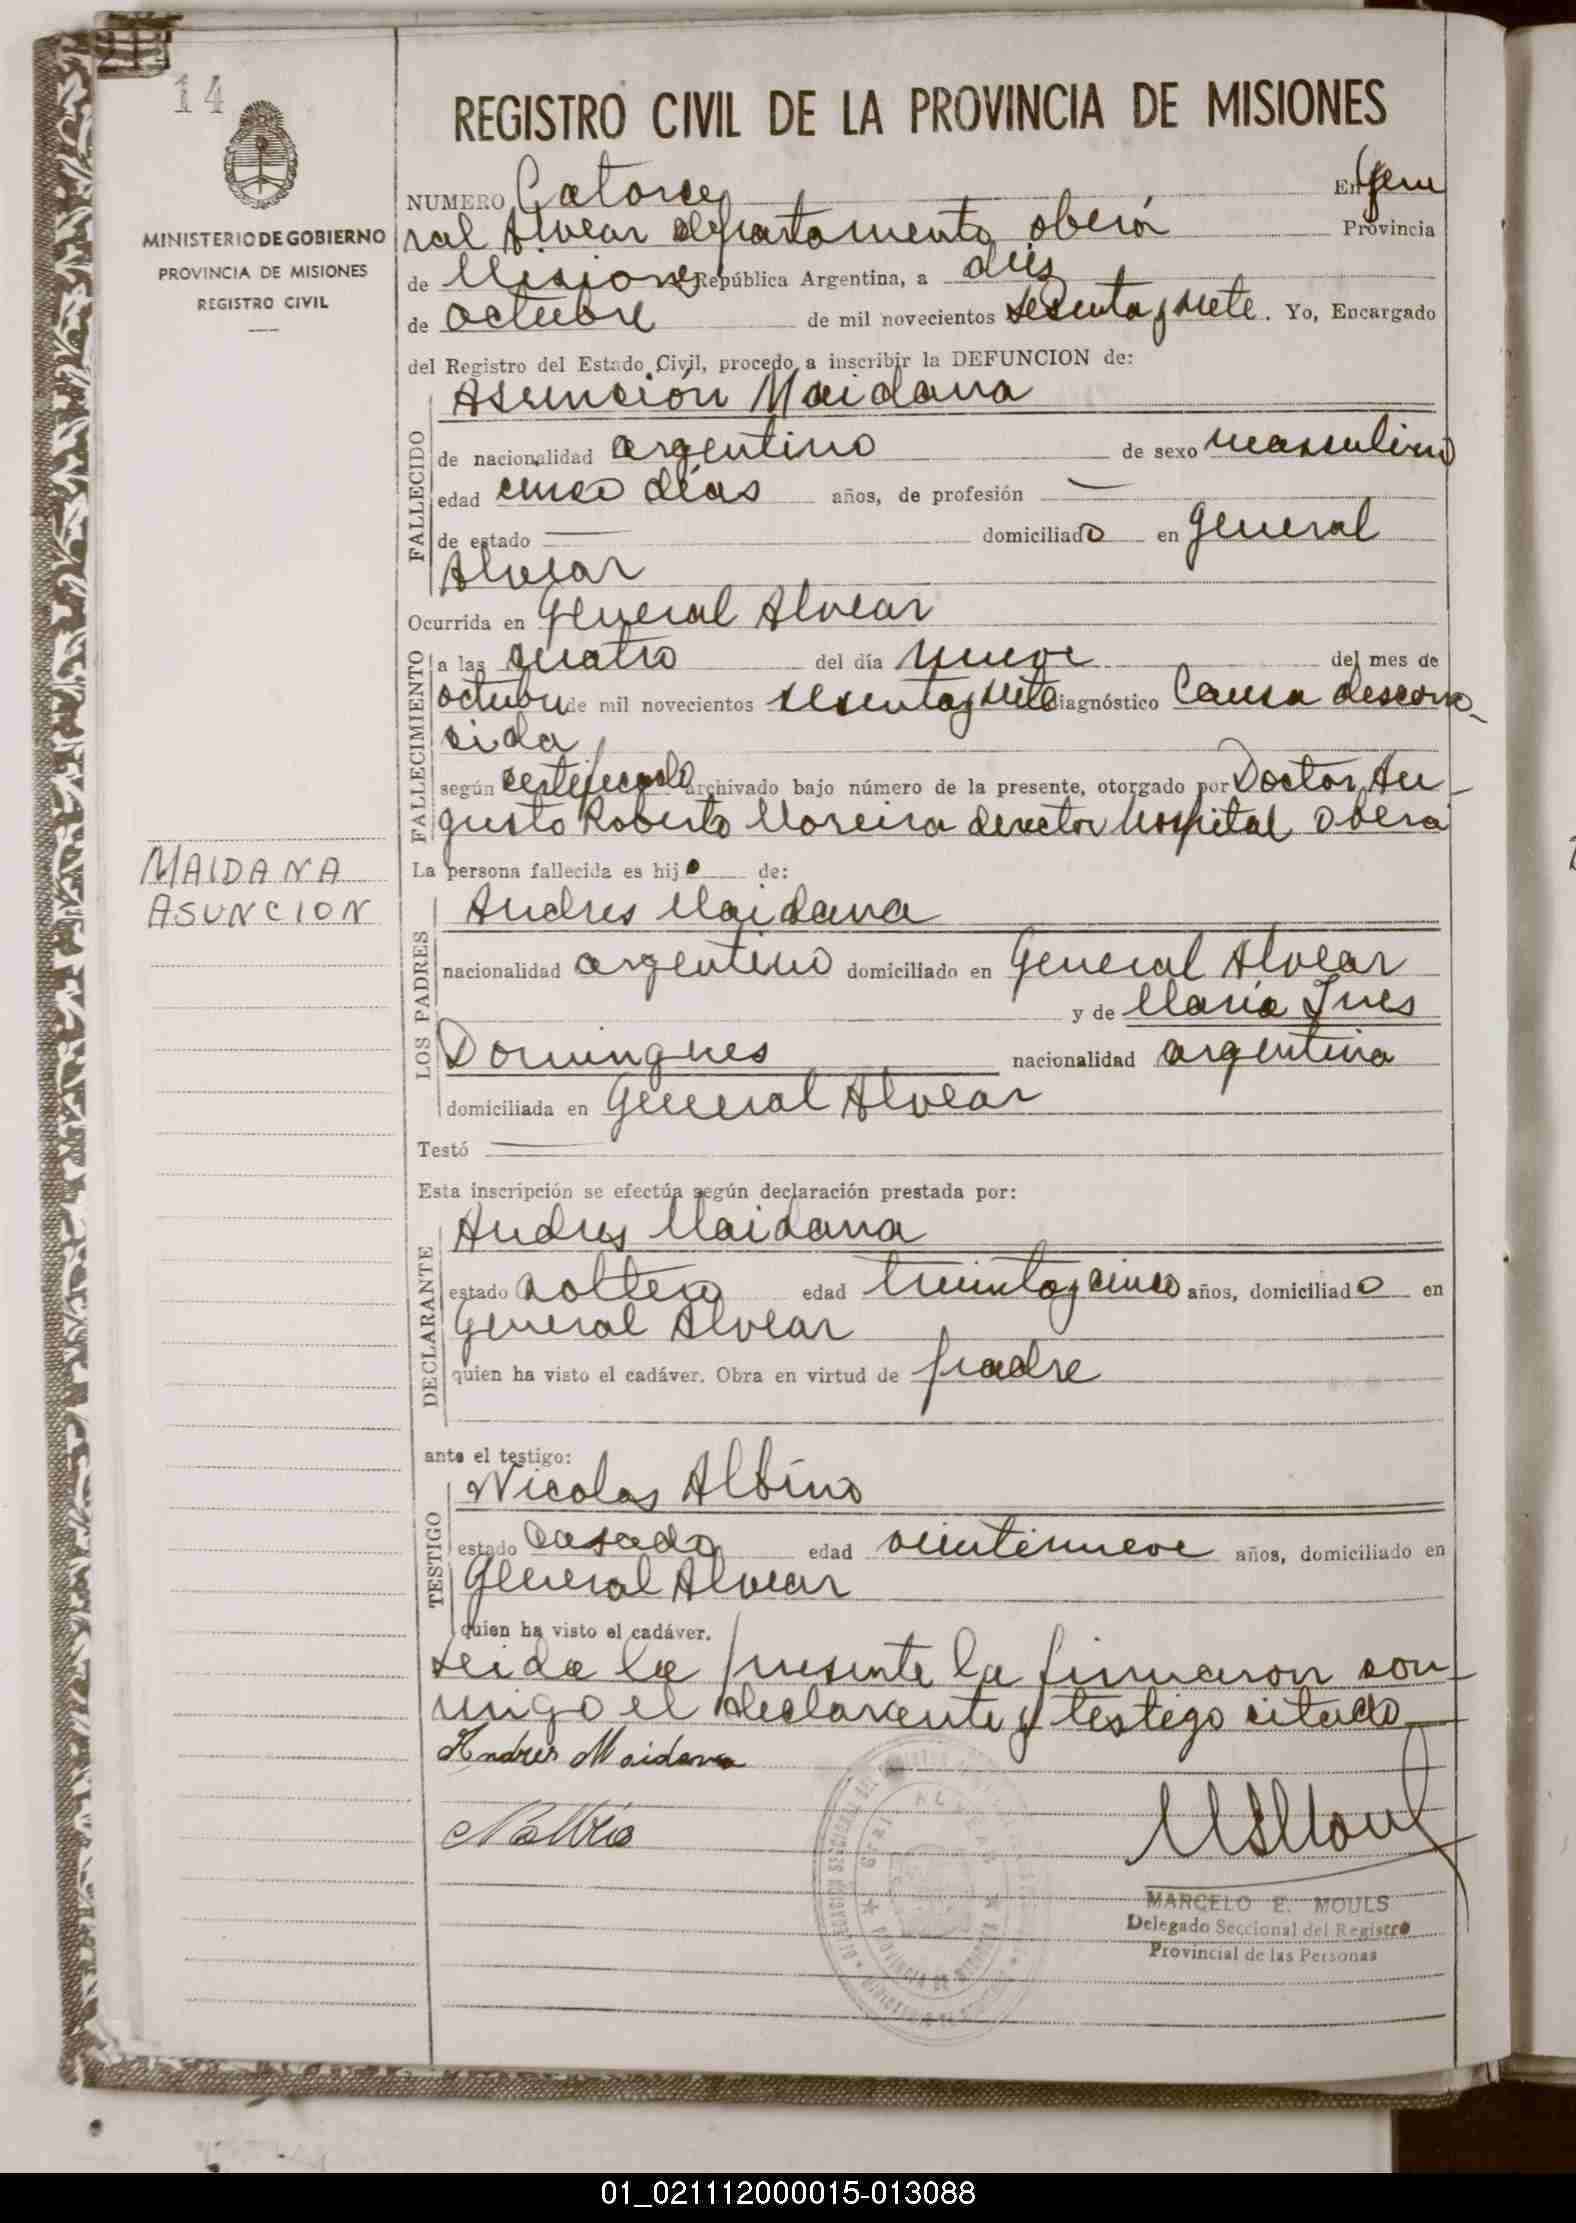 14
MINISTERIO DE GOBIERNO
PROVINCIA DE MISIONES
REGISTRO CIVIL
REGISTRO CIVIL DE LA PROVINCIA DE MISIONES
NUMERO Catorce En Gene
ral Alvear departamento oberá Provincia
de Misiones República Argentina, a diés
de octubre de mil novecientos sesenta y siete. Yo, Encargado
del Registro del Estado Civil, procedo a inscribir la DEFUNCION de:
Asunción Maidana
FALLECIDO
de nacionalidad argentino de sexo masculino
edad cinco días años, de profesión —
de estado — domiciliado en General
Alvear
Ocurrida en General Alvear
FALLECIMIENTO
a las cuatro del día nueve del mes de
octubre de mil novecientos sesenta y siete diagnóstico Causa descono-
sida
según certificado archivado bajo número de la presente, otorgado por Doctor Au-
gusto Roberto Moreira director hospital Oberá
MAIDANA
ASUNCION
La persona fallecida es hijo de:
LOS PADRES
Andres Maidana
nacionalidad argentino domiciliado en General Alvear
y de María Ines
Domingues nacionalidad argentina
domiciliada en General Alvear
Testó —
Esta inscripción se efectúa según declaración prestada por:
DECLARANTE
Andres Maidana
estado soltero edad treinta y cinco años, domiciliado en
General Alvear
quien ha visto el cadáver. Obra en virtud de padre
ante el testigo:
TESTIGO
Nicolas Albino
estado casado edad veintinueve años, domiciliado en
General Alvear
quien ha visto el cadáver.
Leida la presente la firmaron con-
migo el declarante y testigo citado
Andres Maidana
MARCELO E. MOULS
Delegado Seccional del Registro
Provincial de las Personas
Gral ALVEAR
PROVINCIA DE MISIONES
01_021112000015-013088